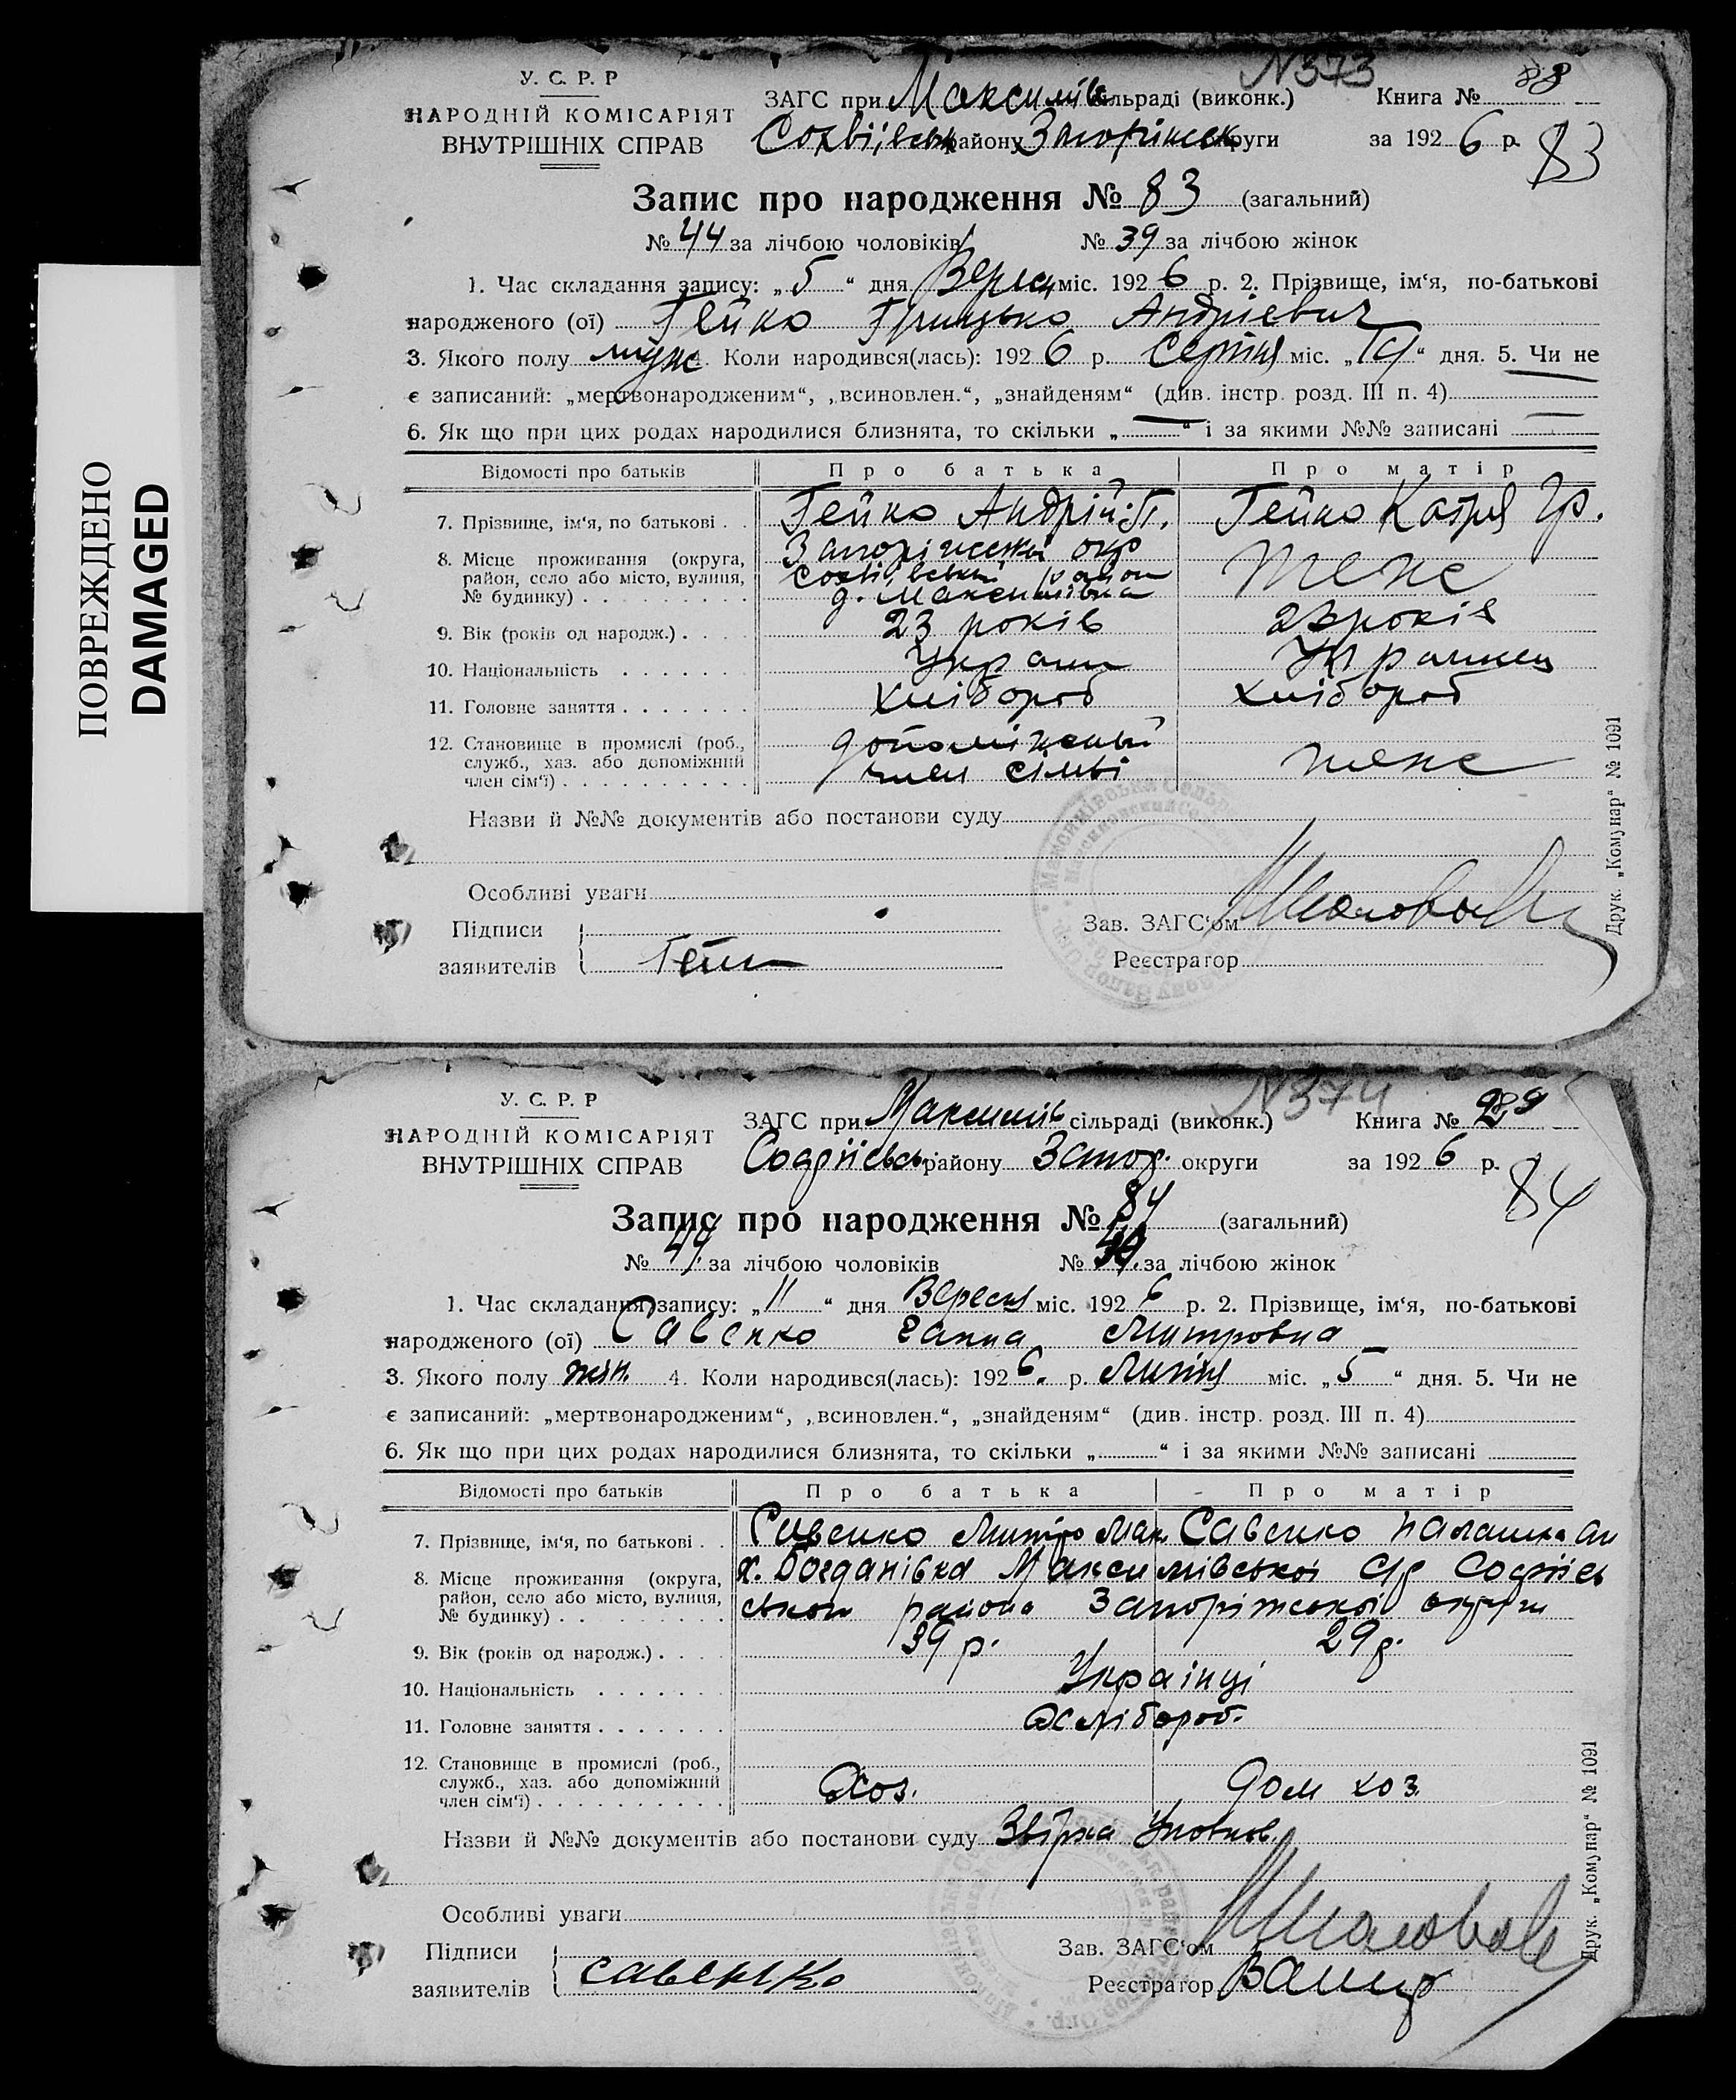 ПОВРЕЖДЕНО
DAMAGED
N373
У. С. Р. Р
НАРОДНІЙ КОМІСАРІЯТ
ВНУТРІШНІХ СПРАВ
ЗАГС при Максимів сільраді (виконк.) Книга № 88
Софіївськ району Запоріжськ округи за 1926 р. 83
Запис про народження № 83 (загальний)
№ 44 за лічбою чоловіків № 39 за лічбою жінок
1. Час складання запису: „5“ дня Вересн міс. 1926 р. 2. Прізвище, ім‘я, по-батькові
народженого (ої) Гейко Грицько Андріевич
3. Якого полу муж 4. Коли народився(лась): 1926 р. Серпня міс. „19“ дня. 5. Чи не
є записаний: „мертвонародженим“, „всиновлен.“, „знайденям“ (див. інстр. розд. III п. 4)
6. Як що при цих родах народилися близнята, то скільки „ “ і за якими №№ записані
Відомості про батьків Про батька Про матір
7. Прізвище, ім‘я, по батькові Гейко Андрій П. Гейко Катря Гр.
8. Місце проживання (округа, Запоріжської окр теже
район, село або місто, вулиця, Софіівський район
№ будинку) д. Максимівка
9. Вік (років од народж.) 23 років 23 років
10. Національність Украин Украинец
11. Головне заняття хлібороб хлібороб
12. Становище в промислі (роб., допоміжный теже
служб., хаз. або допоміжний
член сім‘ї) член сімьі
Назви й №№ документів або постанови суду
Особливі уваги
Підписи
заявителів Гейк
Зав. ЗАГС‘ом
Реєстратор
Друк. „Комунар“ № 1091
N374
У. С. Р. Р
НАРОДНІЙ КОМІСАРІЯТ
ВНУТРІШНІХ СПРАВ
ЗАГС при Максимів сільраді (виконк.) Книга № 89
Софіівськ. району Запор. округи за 1926 р. 84
Запис про народження № 84 (загальний)
№ 44. за лічбою чоловіків № 40. за лічбою жінок
1. Час складання запису: „11“ дня Вересня міс. 1926 р. 2. Прізвище, ім‘я, по-батькові
народженого (ої) Савенко Ганна Митровна
3. Якого полу жін. 4. Коли народився(лась): 1926. р. Липня міс. „5“ дня. 5. Чи не
є записаний: „мертвонародженим“, „всиновлен.“, „знайденям“ (див. інстр. розд. III п. 4)
6. Як що при цих родах народилися близнята, то скільки „ “ і за якими №№ записані
Відомості про батьків Про батька Про матір
7. Прізвище, ім‘я, по батькові Савенко Митро Мак. Савенко Палашка Ан
8. Місце проживання (округа, х. Богданівка Максимівської с/р Софіів
район, село або місто, вулиця,
№ будинку) ського района Запоріжської округи
9. Вік (років од народж.) 39 р. 29 р.
10. Національність Украінці
11. Головне заняття Хлібороб.
12. Становище в промислі (роб.,
служб., хаз. або допоміжний
член сім‘ї) Хоз. Дом хоз.
Назви й №№ документів або постанови суду Звірка
Особливі уваги
Підписи
заявителів Савенко
Зав. ЗАГС‘ом
Реєстратор
Друк. „Комунар“ № 1091